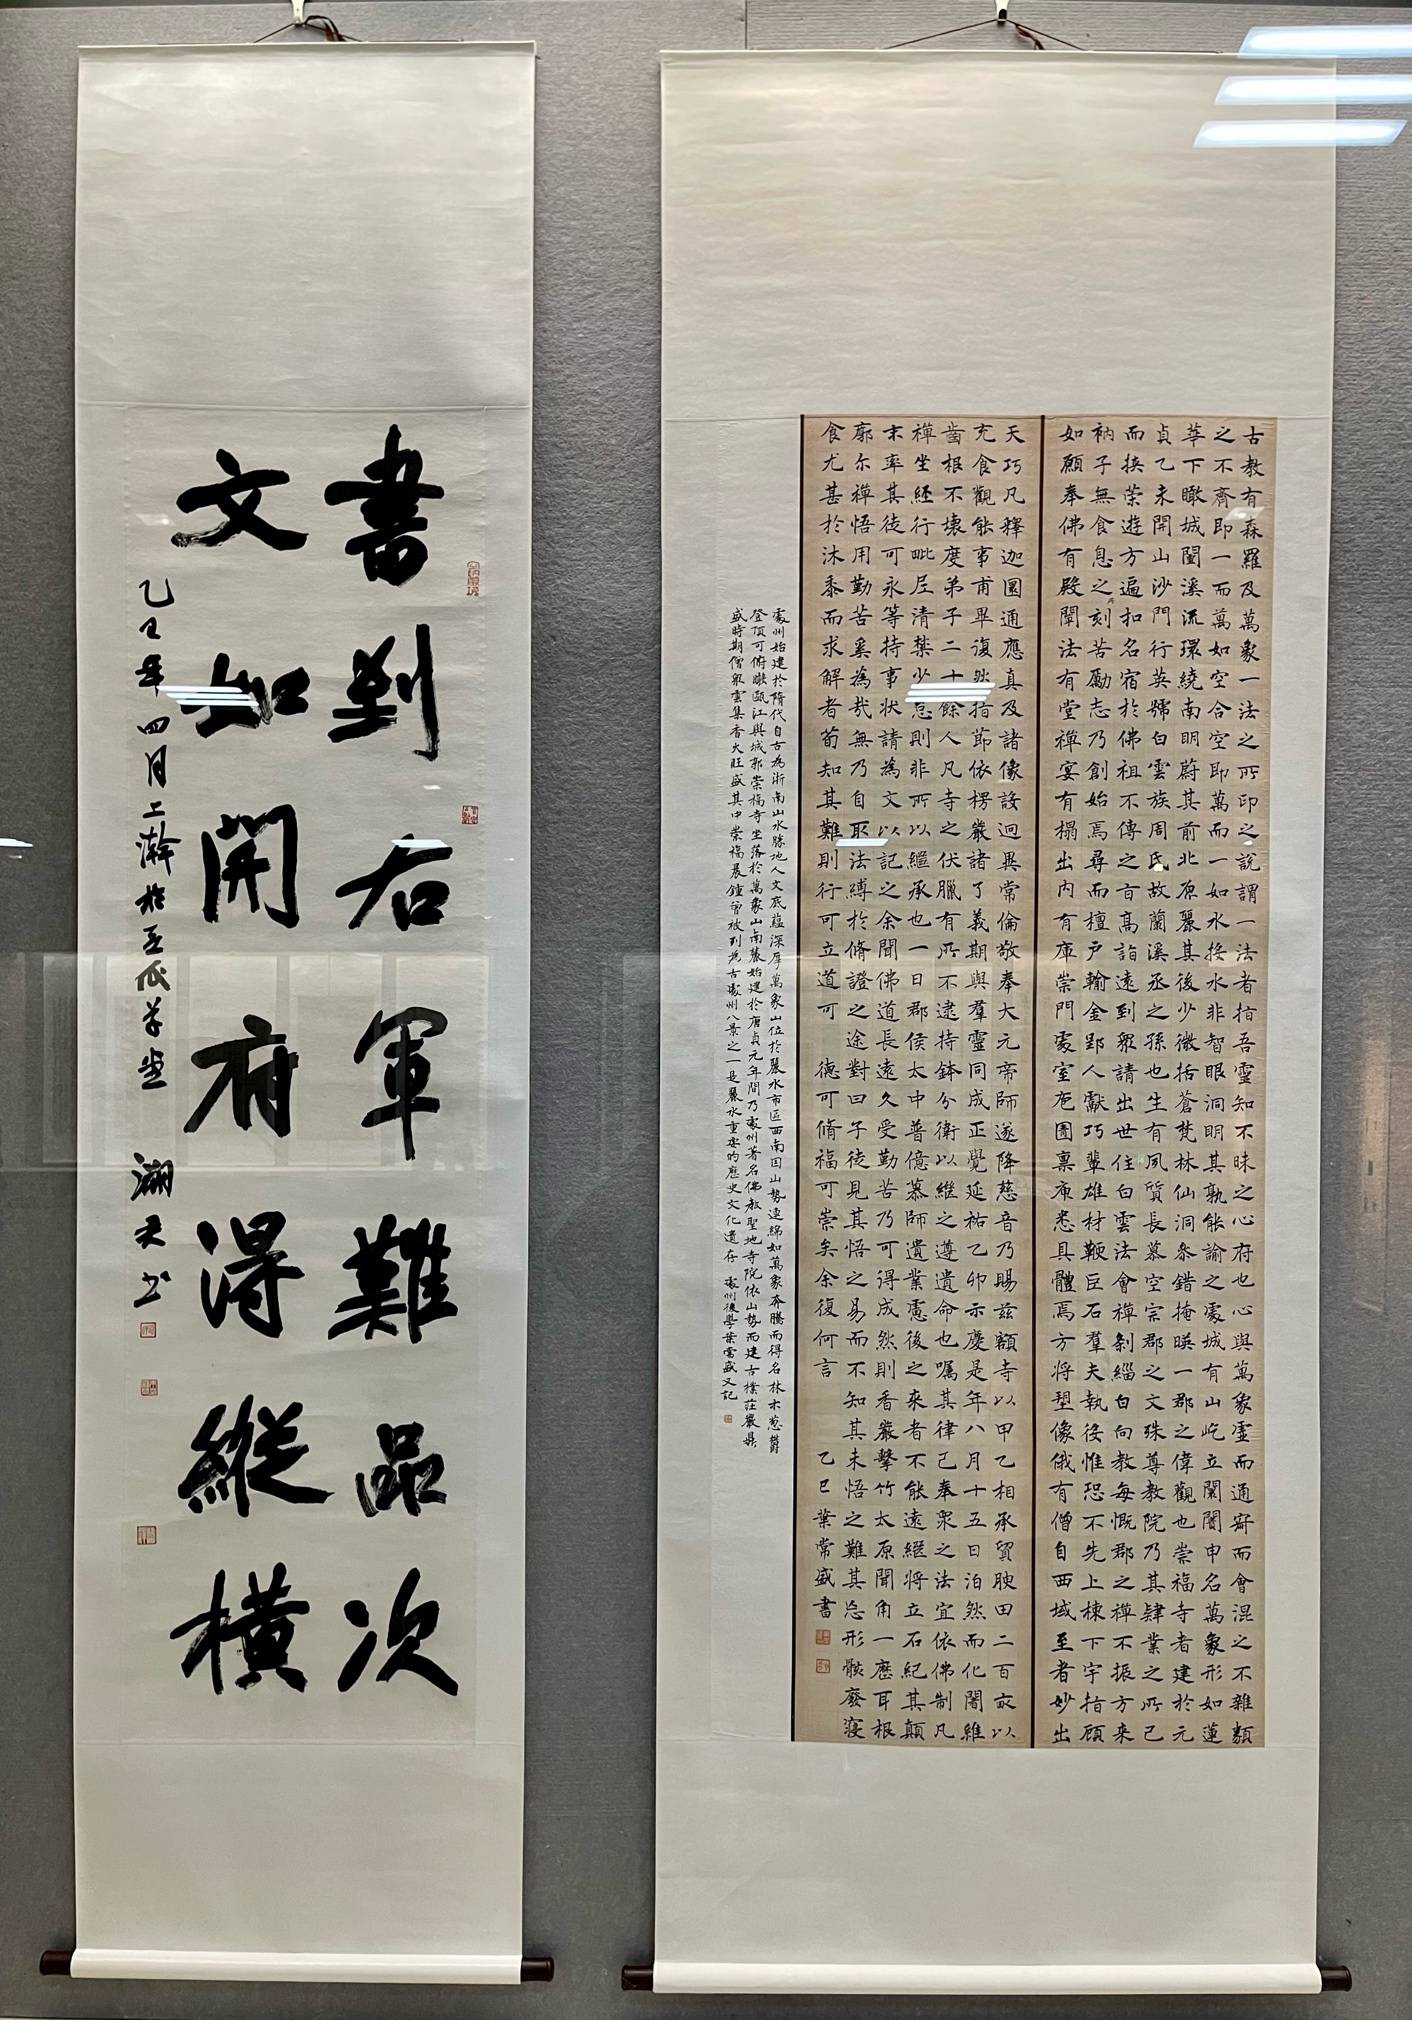 古教有森羅及萬象一法之所印之說謂一法者指吾靈知不昧之心府也心與萬象靈而通寂而會混之不雜類
之不齊即一而萬如空合空即萬而一如水投水非智眼洞明其孰能諭之處城有山屹立闤闠中名萬象形如蓮
華下瞰城闉溪流環繞南明蔚其前北原麗其後少微括蒼梵林仙洞叅錯掩暎一郡之偉觀也崇福寺者建於元
貞乙未開山沙門行英歸白雲族周氏故蘭溪丞之孫也生有夙質長慕空宗郡之文殊尊教院乃其肄業之所已
而挾策遊方遍扣名宿於佛祖不傳之旨高詣遠到眾請出世住白雲法會禪剎緇白向教每慨郡之禪不振方來
衲子無食息之刻苦勵志乃創始焉尋而檀戶輸金郢人獻巧輦雄材鞭巨石羣夫執役惟恐不先上棟下宇指顧
如願奉佛有殿闡法有堂禪宴有榻出內有庫崇門處室庖圊稟庾悉具體焉方將塑像俄有僧自西域至者妙出
天巧凡釋迦圓通應真及諸像設迥異常倫敬奉大元帝師遂降慈音乃賜茲額寺以甲乙相承貿腴田二百畝以
充食觀能事甫畢復然指節依楞嚴諸了義期與羣靈同成正覺延祐乙卯示慶是年八月十五日泊然而化闍維
齒根不壞度弟子二十餘人凡寺之伏臘有所不逮持鉢分衛以繼之遵遺命也囑其律己奉眾之法宜依佛制凡
禪坐經行毗尼清禁少怠則非所以繼承也一日郡侯太中普億慕師遺業慮後之來者不能遠繼將立石紀其顛
末率其徒可永等持事狀請為文以記之余聞佛道長遠久受勤苦乃可得成然則香嚴擊竹太原聞角一歷耳根
廓尔禪悟用勤苦奚為哉無乃自取法縛於脩證之途對曰子徒見其悟之易而不知其未悟之難其忘形骸廢寢
食尤甚於沐黍而求解者苟知其難則行可立道可德可脩福可崇矣余復何言 乙巳葉常盛書
處州始建於隋代自古為浙南山水勝地人文底蘊深厚萬象山位於麗水市區西南因山勢連綿如萬象奔騰而得名林木蔥鬱
登頂可俯瞰甌江與城郭崇福寺坐落於萬象山南麓始建於唐貞元年間乃處州著名佛教聖地寺院依山勢而建古樸莊嚴鼎
盛時期僧眾雲集香火旺盛其中崇福晨鐘曾被列為古處州八景之一是麗水重要的歷史文化遺存 處州後學葉常盛又記
書到右軍難品次
文如開府得縱橫
乙巳年四月上澣於五瓜草堂 湖天书